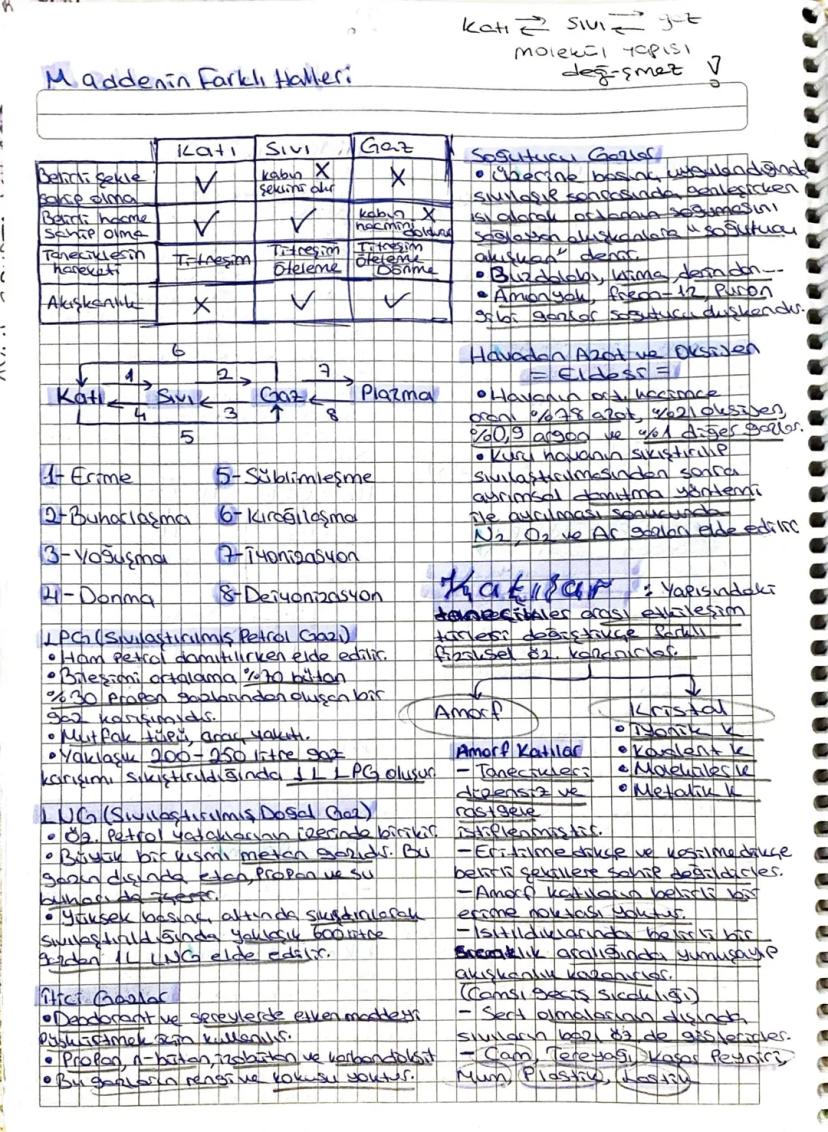 Katı ⇄ Sıvı ⇄ gaz
molekül yapısı
değişmez !
Maddenin Farklı Halleri
Katı Sıvı Gaz
Belirli şekle sahip olma ✓ kabın X şeklini alır X
Belirli hacme sahip olma ✓ ✓ kabın X hacmini doldurur
Taneciklerin hareketi Titreşim Titreşim Öteleme Titreşim Öteleme Dönme
Akışkanlık X ✓ ✓
6
1 2 7
Katı Sıvı Gaz Plazma
4 3 8
5
1- Erime 5- Süblimleşme
2- Buharlaşma 6- Kırağılaşma
3- Yoğuşma 7- İyonizasyon
4- Donma 8- Deiyonizasyon
LPG (Sıvılaştırılmış Petrol Gazı)
• Ham petrol damıtılırken elde edilir.
• Bileşimi ortalama %70 bütan
%30 propan gazlarından oluşan bir
gaz karışımıdır.
• Mutfak tüpü, araç yakıtı.
• Yaklaşık 200-250 litre gaz
karışımı sıkıştırıldığında 1L LPG oluşur.
LNG (Sıvılaştırılmış Doğal Gaz)
• Öz. Petrol yataklarının üzerinde birikir.
• Büyük bir kısmı metan gazıdır. Bu
gazın dışında etan, propan ve su
buharı da içerir.
• Yüksek basınç altında sıkıştırılarak
sıvılaştırıldığında yaklaşık 600 litre
gazdan 1L LNG elde edilir.
İtici Gazlar
• Deodorant ve spreylerde etken maddeyi
püskürtmek için kullanılır.
• Propan, n-bütan, izobütan ve karbondioksit
• Bu gazların rengi ve kokusu yoktur.
Soğutucu Gazlar
• Üzerine basınç uygulandığında
sıvılaşıp sonrasında genleşirken
ısı alarak ortamın soğumasını
sağlayan akışkanlara "soğutucu
akışkan" denir.
• Buzdolabı, klima, derin don---
• Amonyak, freon-12, Puron
gibi gazlar soğutucu akışkandır.
Havadan Azot ve Oksijen
= Eldesi =
• Havanın ort. hacimce
oranı %78 azot, %21 oksijen,
%0,9 argon ve %1 diğer gazlar.
• Kuru havanın sıkıştırılıp
sıvılaştırılmasından sonra
ayrımsal damıtma yöntemi
ile ayrılması sonucunda
N2, O2 ve Ar gazları elde edilir.
Katılar : Yapısındaki
tanecikler arası etkileşim
türleri değiştikçe farklı
fiziksel öz. kazanırlar.
Amorf Kristal
• İyonik k
• Kovalent k
• Moleküler k
• Metalik k
Amorf Katılar
- Tanecikleri
düzensiz ve
rastgele
istiflenmiştir.
- Eritilmedikçe ve kesilmedikçe
belirli şekillere sahip değildirler.
- Amorf katıların belirli bir
erime noktası yoktur.
- Isıtıldıklarında belirli bir
sıcaklık aralığında yumuşayıp
akışkanlık kazanırlar.
(Camsı geçiş sıcaklığı)
- Sert olmalarının dışında
sıvıların bazı öz. de gösterirler.
- Cam, Tereyağı, Kaşar Peyniri,
Mum, Plastik, Lastik